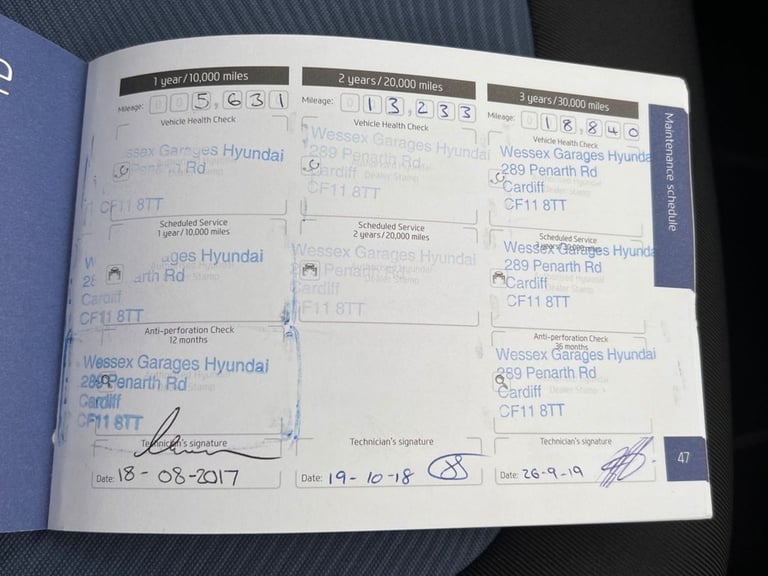 1 year/10,000 miles
Mileage: 005,631
Vehicle Health Check
Garages Hyundai
Rd
CF11 8TT
Scheduled Service
1 year/10,000 miles
ages Hyundai
arth Rd
Cardiff
CF11 8TT
Anti-perforation Check
12 months
Wessex Garages Hyundai
289 Penarth Rd
Cardiff
CF11 8TT
Technician's signature
Date: 18-08-2017
2 years/20,000 miles
Mileage: 013,233
Vehicle Health Check
Wessex Garages Hyundai
289 Penarth Rd
Dealer Stamp
Cardiff
CF11 8TT
Scheduled Service
2 years/20,000 miles
Wessex Garages Hyundai
Penarth Rd
Dealer Stamp
Cardiff
CF11 8TT
Technician's signature
Date: 19-10-18
3 years/30,000 miles
Mileage: 018,840
Vehicle Health Check
Wessex Garages Hyunda
289 Penarth Rd
Cardiff
Dealer Stamp
CF11 8TT
Scheduled Service
3 years/30,000 miles
Wessex Garages Hyundai
289 Penarth Rd
Cardiff
Dealer Stamp
CF11 8TT
Anti-perforation Check
36 months
Wessex Garages Hyundai
289 Penarth Rd
Cardiff
Dealer Stamp
CF11 8TT
Technician's signature
Date: 26-9-19
Maintenance schedule
47